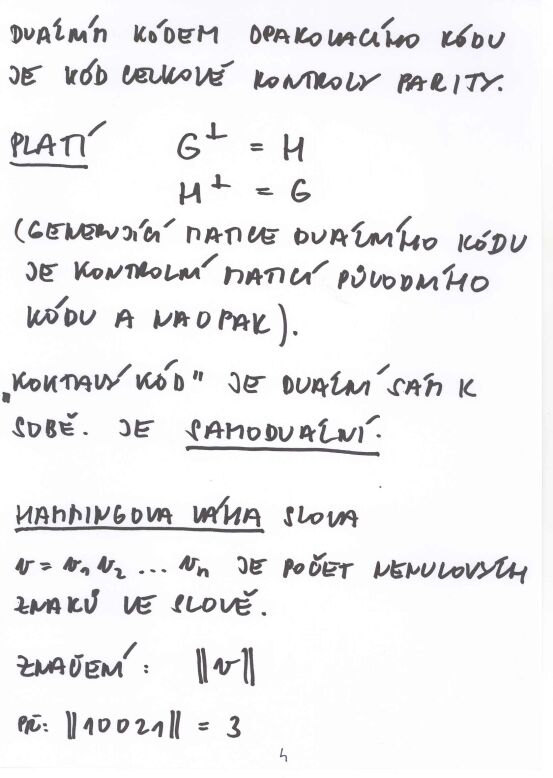 DUÁLNÍM KÓDEM OPAKOVACÍHO KÓDU
JE KÓD CELKOVÉ KONTROLY PARITY.
PLATÍ G⊥ = H
H⊥ = G
(GENERUJÍCÍ MATICE DUÁLNÍHO KÓDU
JE KONTROLNÍ MATICÍ PŮVODNÍHO
KÓDU A NAOPAK).
„KOKTAVÝ KÓD" JE DUÁLNÍ SÁM K
SOBĚ. JE SAMODUÁLNÍ.
HAMMINGOVA VÁHA SLOVA
v = v₁ v₂ ... vₙ JE POČET NENULOVÝCH
ZNAKŮ VE SLOVĚ.
ZNAČENÍ: ||v||
PŘ: ||10021|| = 3
4